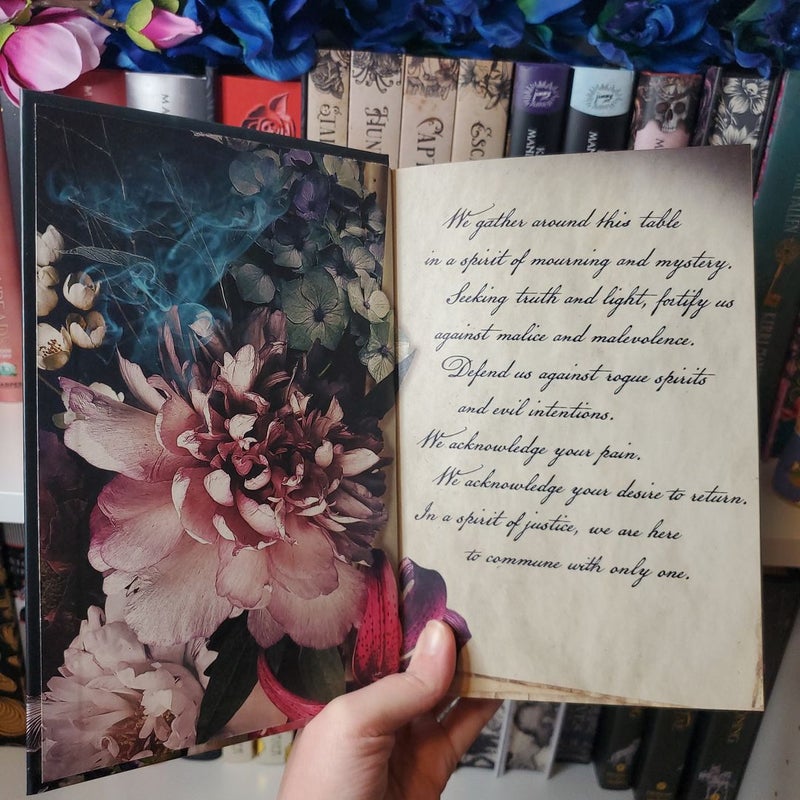 We gather around this table
in a spirit of mourning and mystery.
Seeking truth and light, fortify us
against malice and malevolence.
Defend us against rogue spirits
and evil intentions.
We acknowledge your pain.
We acknowledge your desire to return.
In a spirit of justice, we are here
to commune with only one.